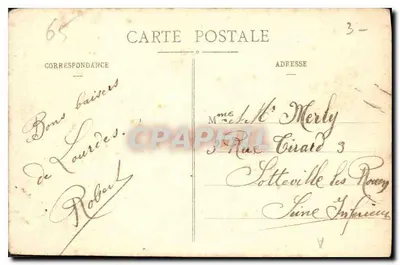 65
3-
CARTE POSTALE
CORRESPONDANCE
ADRESSE
Bons baisers
de Lourdes.
Robert
Mme & Mr Merly
3 Rue Tirard 3
Sotteville les Rouen
Seine Inférieure